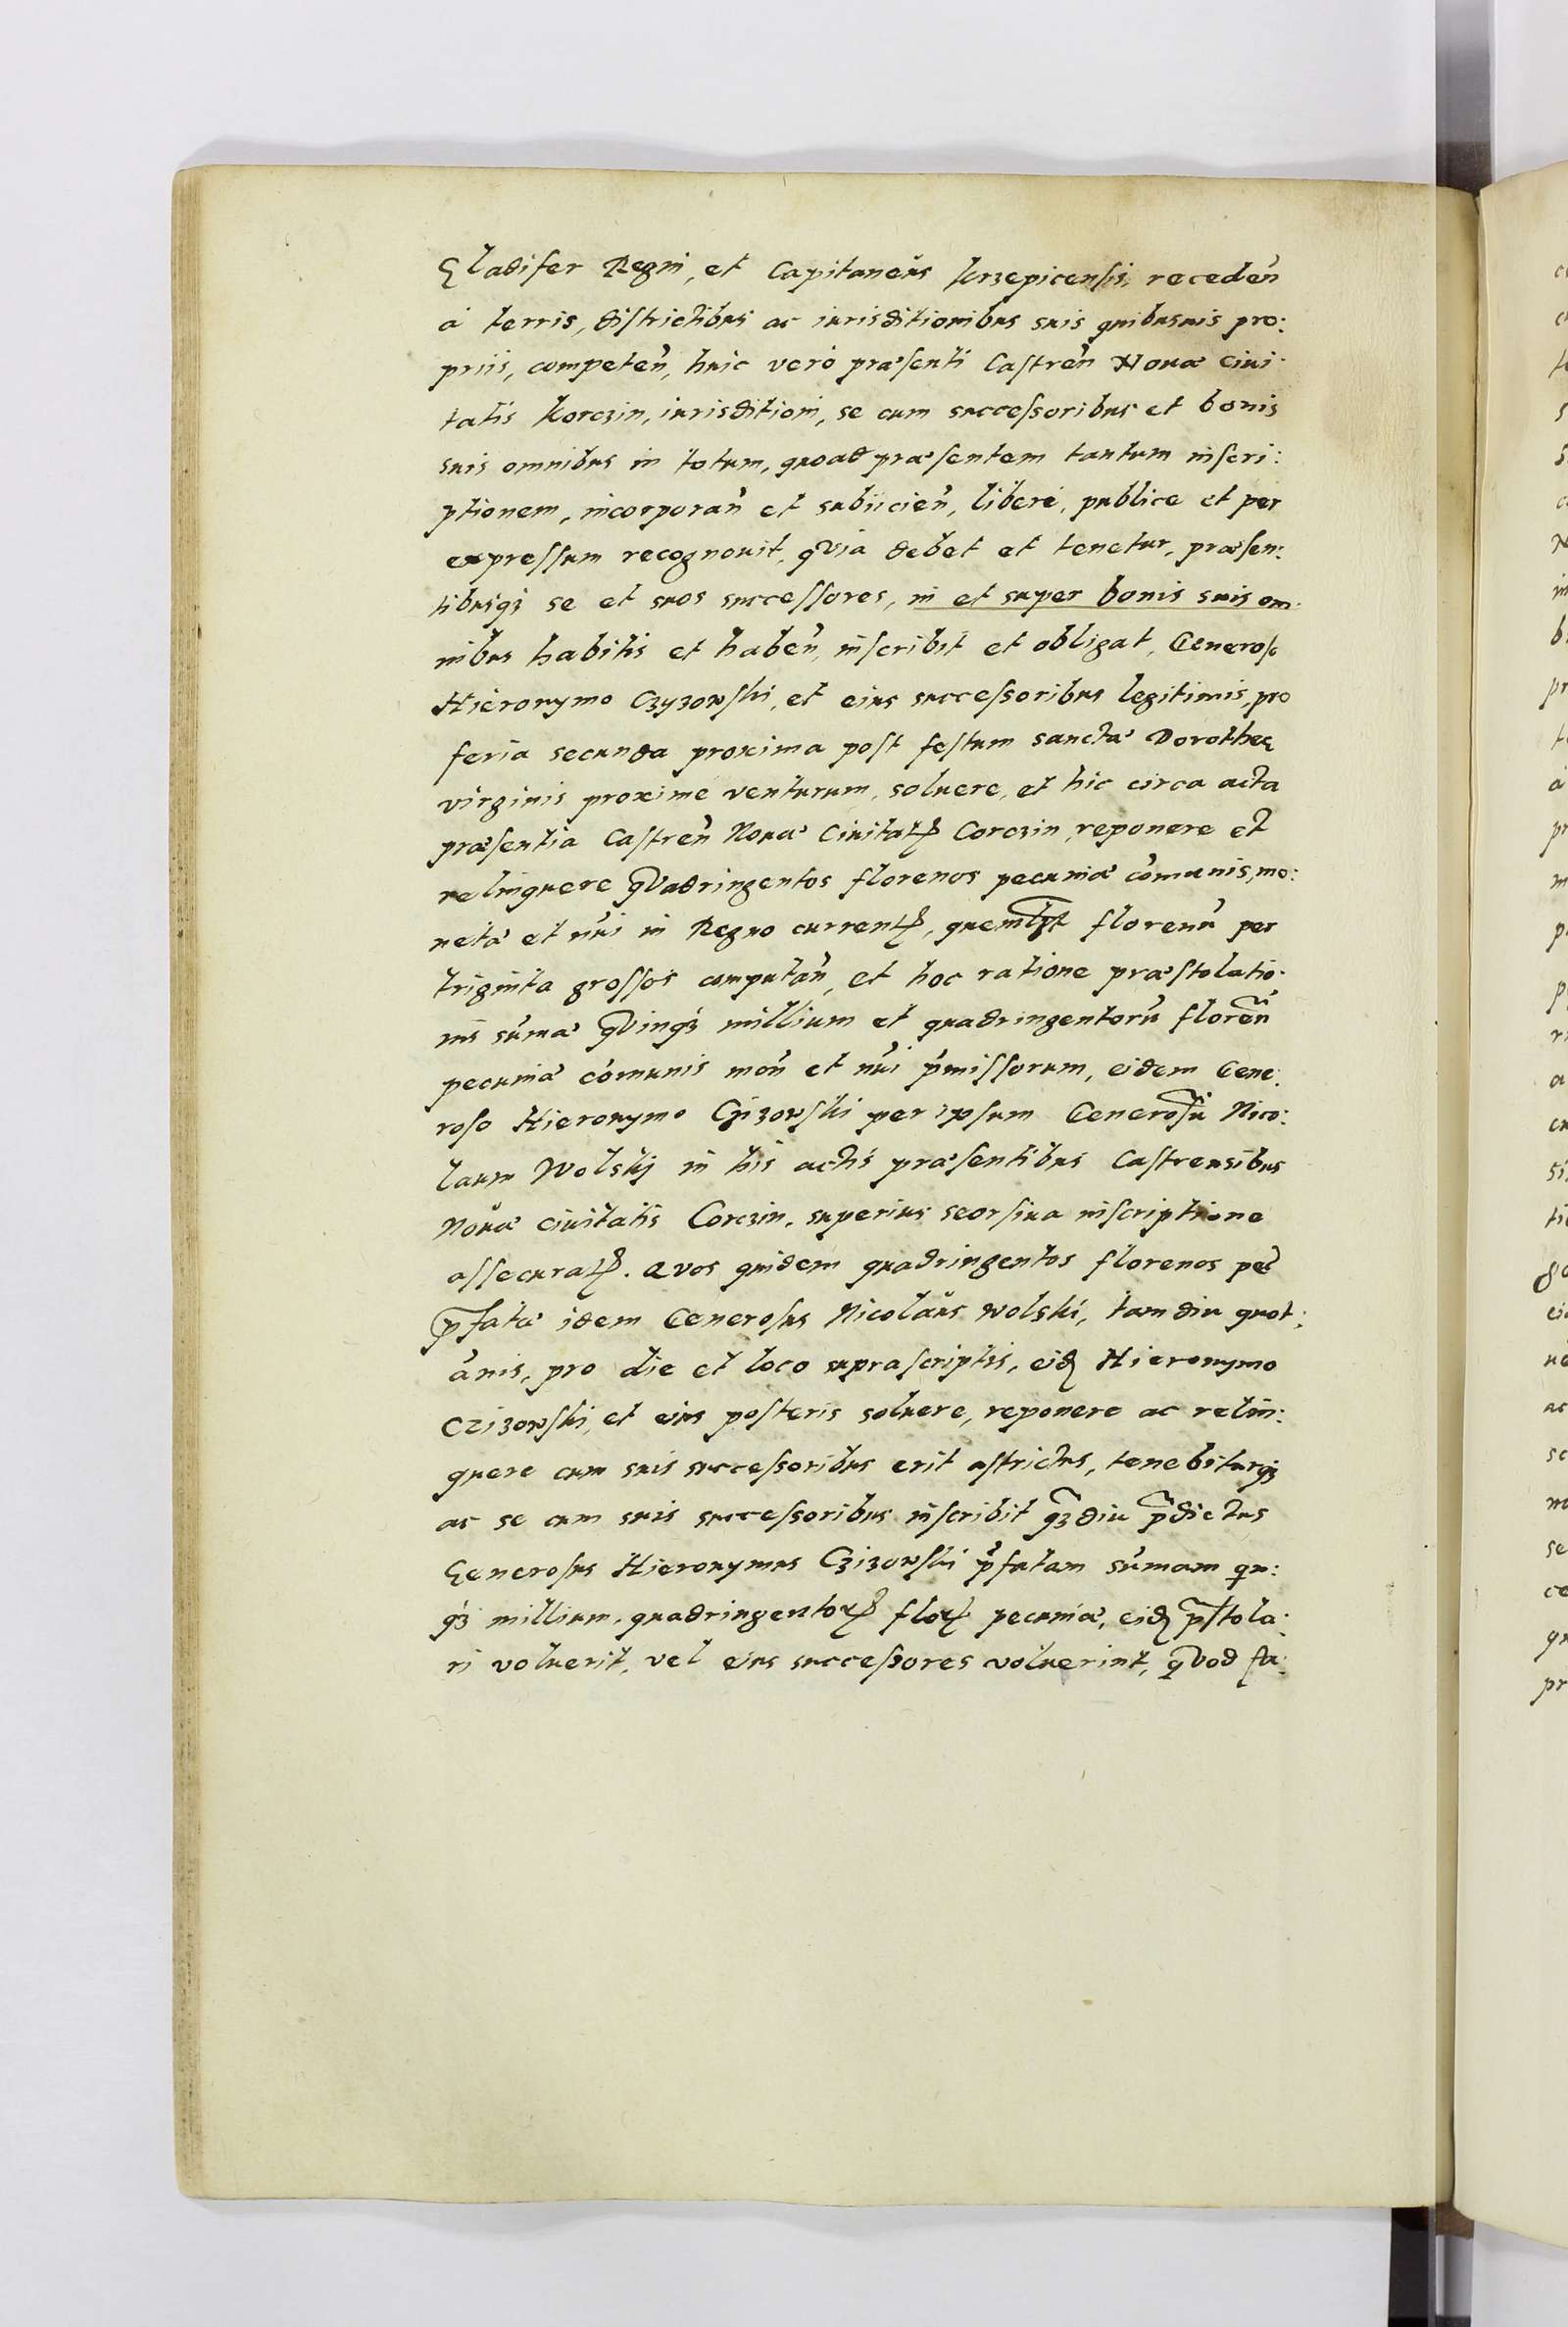 Gladifer Regni, et Capitaneus krzepicensis, receden̄
à terris, districtibus ac iurisditionibus suis quibusuis pro:
priis, competen̄, huic verò præsenti Castren̄ Nouæ Ciui:
tatis Korczin, iurisditioni, se cum successoribus et bonis
suis omnibus in totum, quoad præsentem tantum inscri:
ptionem, incorporan̄ et subiicien̄, liberè, publice et per
expressum recognouit, quia debet et tenetur, præsen:
tibusq₃ se et suos successores, in et super bonis suis om:
nibus habitis et haben̄, inscribit et obligat, Generoso
Hieronymo Czyzowski, et eius successoribus legitimis, pro
feria secunda proxima post festum sanctæ Dorotheę
virginis proximè venturum, soluere, et hic circa acta
præsentia Castren̄ Nouæ Ciuitatꝭ Corczin, reponere et
relinquere quadringentos florenos pecuniæ com̄unis, mo:
netæ et nūi in Regno currentꝭ, quemlꝫt florenū per
triginta grossos computan̄, et hoc ratione præstolatio:
nis sum̄æ quinq₃ millium et quadringentorū floren̄
pecuniæ com̄unis mon̄ et nūi p̄missorum, eidem Gene:
roso Hieronymo Czizowski per ipsum Generosū Nico:
laum Wolskj in his actis præsentibus Castrensibus
Nouæ ciuitatis Corczin, superius seorsiua inscriptione
assecuratꝭ. Quos quidem quadringentos florenos pec̄
p̄fatæ idem Generosus Nicolaus Wolski, tam diu quot:
an̄is, pro die et loco supra scriptis, eidꝫ Hieronymo
Czizowski, et eius posteris soluere, reponere ac relin:
quere cum suis successoribus erit astrictus, tenebiturq₃
ac se cum suis successoribus inscribit q̄ꝫdiu p̄dictus
Generosus Hieronymus Czizowski p̄fatam sum̄am qu:
q₃ millium, quadringentoꝝ floꝝ pecuniæ, eidꝫ p̄stola:
ri voluerit, vel eius successores voluerint, quod fa: